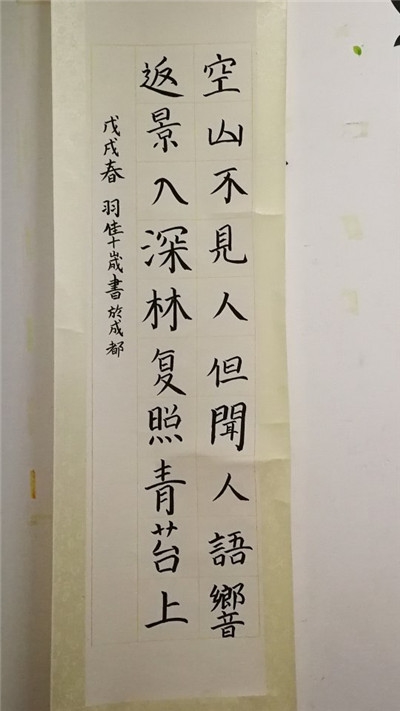 空山不見人但聞人語響
返景入深林复照青苔上
戊戌春 羽佳十歲書於成都